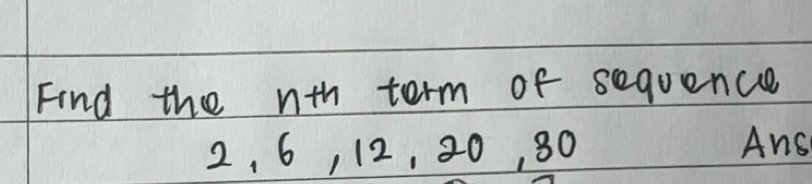 Find the nth term of sequence
2, 6, 12, 20, 30 Ans